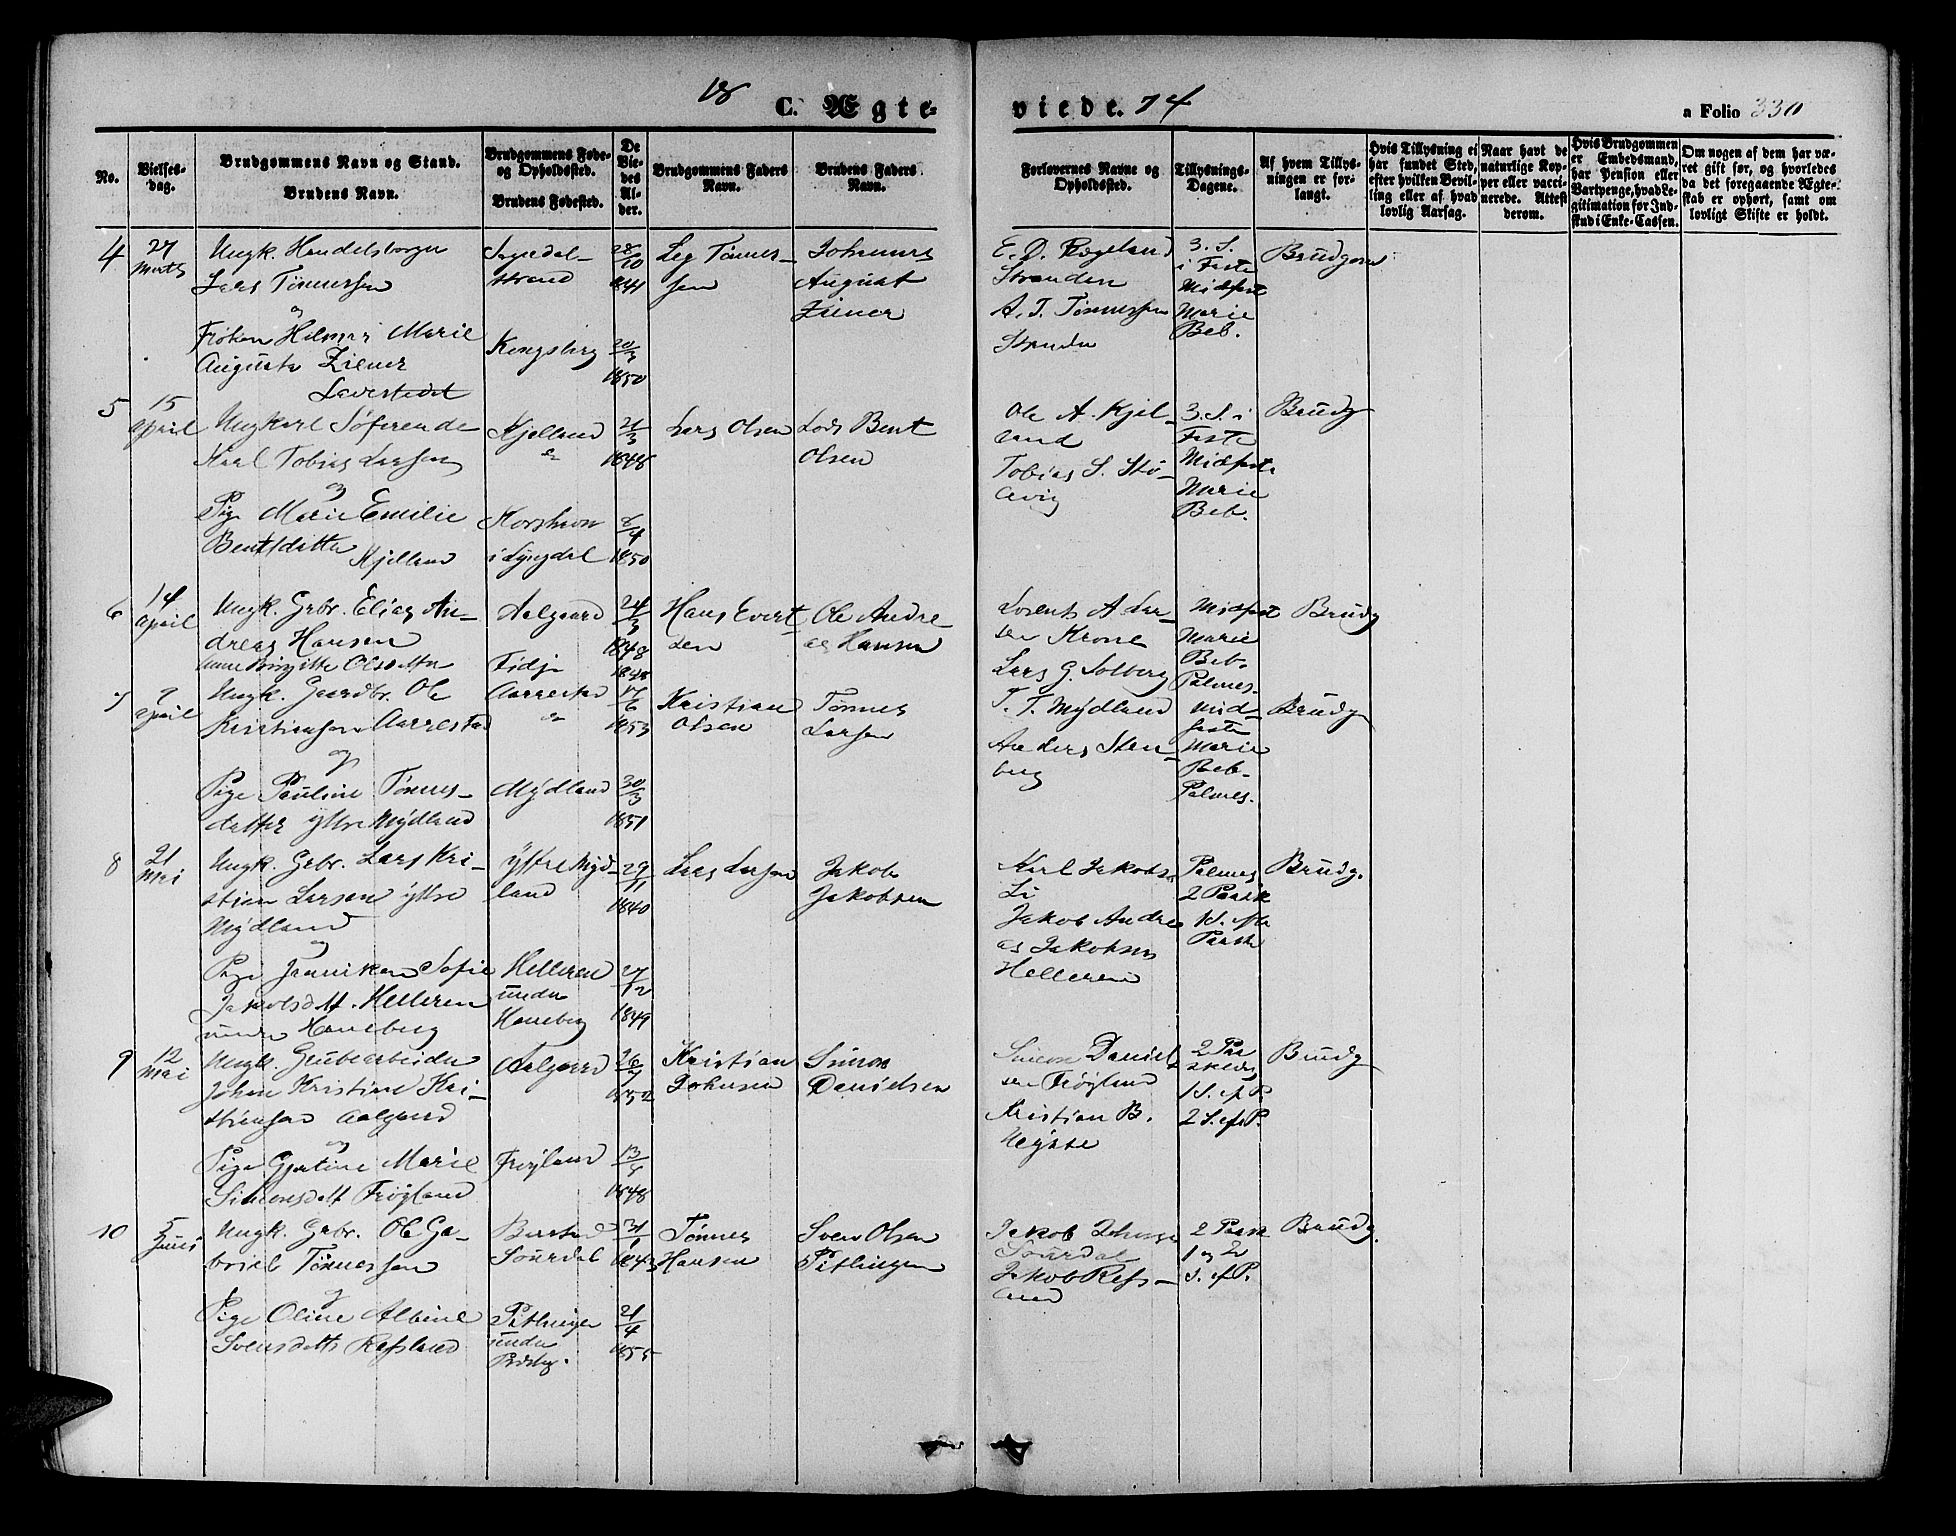 18
C. Ægte-
viede. 74
a Folio 330
No.
Vielses-
dag.
Brudgommens Navn og Stand.
Brudens Navn.
Brudgommens Føde-
og Opholdssted.
Brudens Fødested.
De
Vie-
des
Al-
der.
Brudgommens Faders
Navn.
Brudens Faders
Navn.
Forlovernes Navne og
Opholdssted.
Tillysnings-
Dagene.
Af hvem Tillys-
ningen er for-
langt.
Hvis Tillysning ei
har fundet Sted,
efter hvilken Bevil-
ling eller af hvad
lovlig Aarsag.
Naar havt de
naturlige Kop-
per eller vacci-
nerede. Attest
derom.
Hvis Brudgommen
er Embedsmand,
har Pension eller
Vartpenge, hvad Le-
gitimation for Ind-
skud i Enke-Cassen.
Om nogen af dem har væ-
ret gift før, og hvorledes
da det foregaaende Ægte-
skab er ophørt, samt om
lovligt Skifte er holdt.
4
27
Marts
Ungk. Handelsborger
Lars Tønnessen
og
Frøken Helmer Marie
Augusta Ziener
Sogndal-
strand
Kongsberg
28/10
1841
20/3
1850
Tønnes-
sen
Johannes
August
Ziener
E. D. Rægeland
Stranden
A. T. Tønnessen
3. S.
i Faste
Midfaste
Marie
Beb.
Brudgom
5
15
April
Ungkarl Søfarende
Karl Tobias Larsen
og
Pige Marie Emilie
Bentsdatter
Kjelland
Kjelland
i Lyngdal
21/3
1848
8/4
1850
Lars Olsen
Lods Bent
Olsen
Ole A. Kjel-
land
Tobias S.
3. S. i
Faste
Midfaste
Marie
Beb.
Brudg
6
14
April
Ungk. Grbr. Elias An-
dreas Hansen
Anne Birgitte Olsdatter
Aalgaard
Fidje
24/3
1848
1848
Hans Evert-
sen
Ole Andre
as Hansen
Lorents A Lar
sen Krone
Lars G. Solberg
Midfast
Marie
Beb.
Palmes.
Brudg
7
9
April
Ungk. Gaardbr. Ole
Kristiansen Aarrestad
og
Pige Pauline Tønnes-
datter ytre Mydland
Aarrestad
Mydland
17/6
1853
30/3
1851
Kristian
Olsen
Tønnes
Larsen
T. T. Mydland
Anders Sten-
berg
Mid-
faste
Marie
Beb.
Palmes.
Brudg
8
21
Mai
Ungk. Grbr. Lars Kri-
stian Larsen ytre
Mydland
og
Pige Janniken Sofie
Jakobsdatt. Helleren
under Haneberg
Ytre Myd-
land
Helleren
under
Haneberg
29/11
1840
27/12
1849
Lars Larsen
Jakob
Jakobsen
Karl Jakobs.
Li
Jakob Andre
as Jakobsen
Helleren
Palmes
2 Paask
1 S. efter
Paaske
Brudg.
9
12
Mai
Ungk. Grubearbeider
Johan Kristine Kri-
stiansen Aalgaard
og
Pige Gjertine Marie
Simonsdatt Frøyland
Aalgaard
Frøyland
26/7
1852
13/4
1848
Kristian
Johnsen
Simon
Danielsen
Simon Daniel
sen Frøyland
Kristian B.
2 Paa
skedag
1 S. ef P.
2 S. ef P.
Brudg
10
5
Juni
Ungk. Grbr. Ole Ga-
briel Tønnessen
og
Pige Oline Albine
Svensdatt. Refsland
Sourdal
under
31/1
1843
21/4
1855
Tønnes
Hansen
Sven Olsen
Pitlingen
Jakob
Sourdal
Jakob Refs-
land
2 Paask
1 og 2
S. ef P.
Brudg.